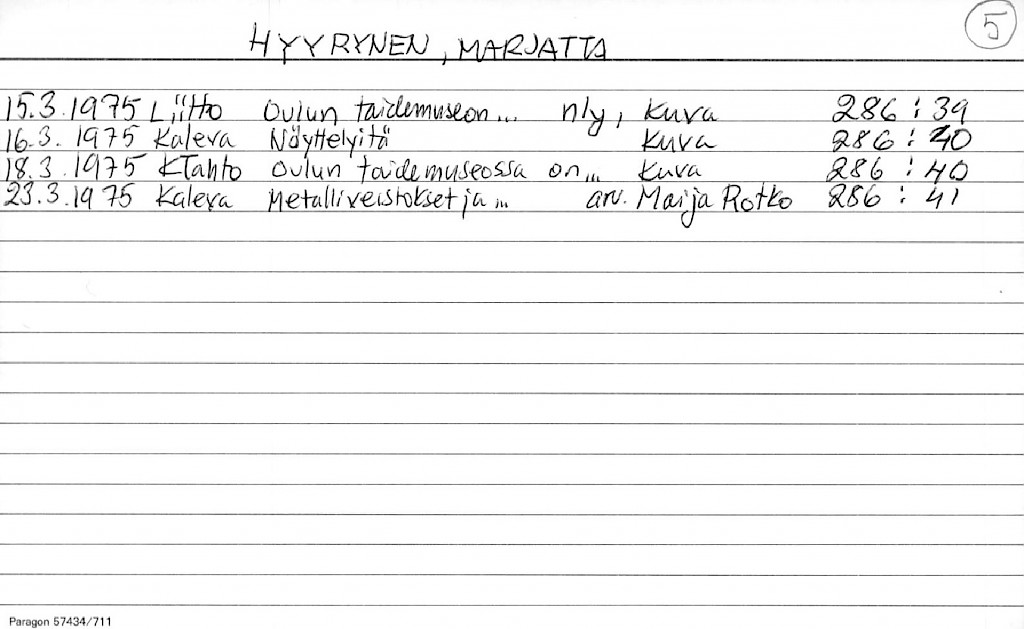 5
HYYRYNEN, MARJATTA
15.3.1975 Liitto Oulun taidemuseon... nly, kuva 286:39
16.3. 1975 Kaleva Näyttelyitä kuva 286:40
18.3.1975 KTahto Oulun taidemuseossa on... kuva 286:40
23.3.1975 Kaleva Metalliveistokset ja... arv. Maija Rotko 286:41
Paragon 57434/711